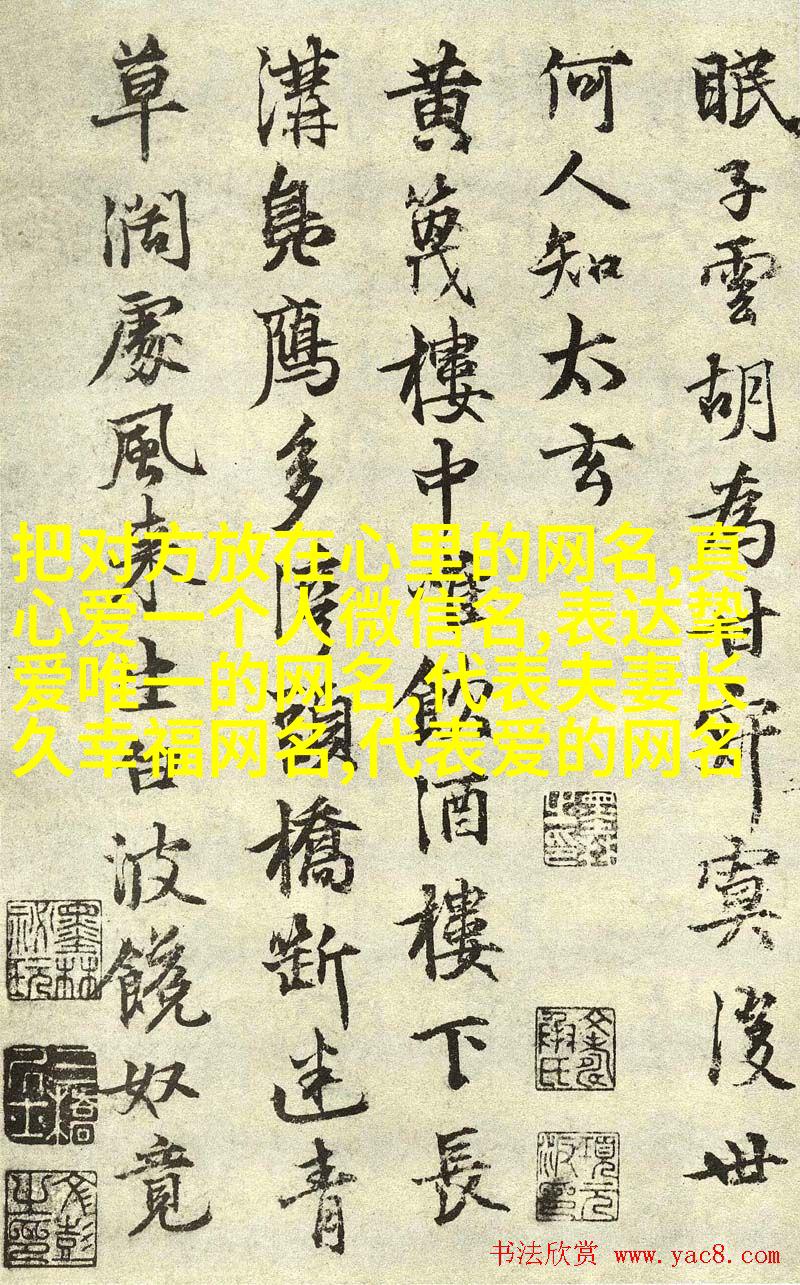 眠子雲胡為甘寂寞沒世
何人知太玄
黄篾樓中飲酒樓下長
溝鳧鷹多橋斷迷青
草濶處風来上波饒奴竟
把对方放在心里的网名,真
心爱一个人微信名,表达挚
爱唯一的网名,代表夫妻长
久幸福网名,代表爱的网名
书法欣赏 www.yac8.com